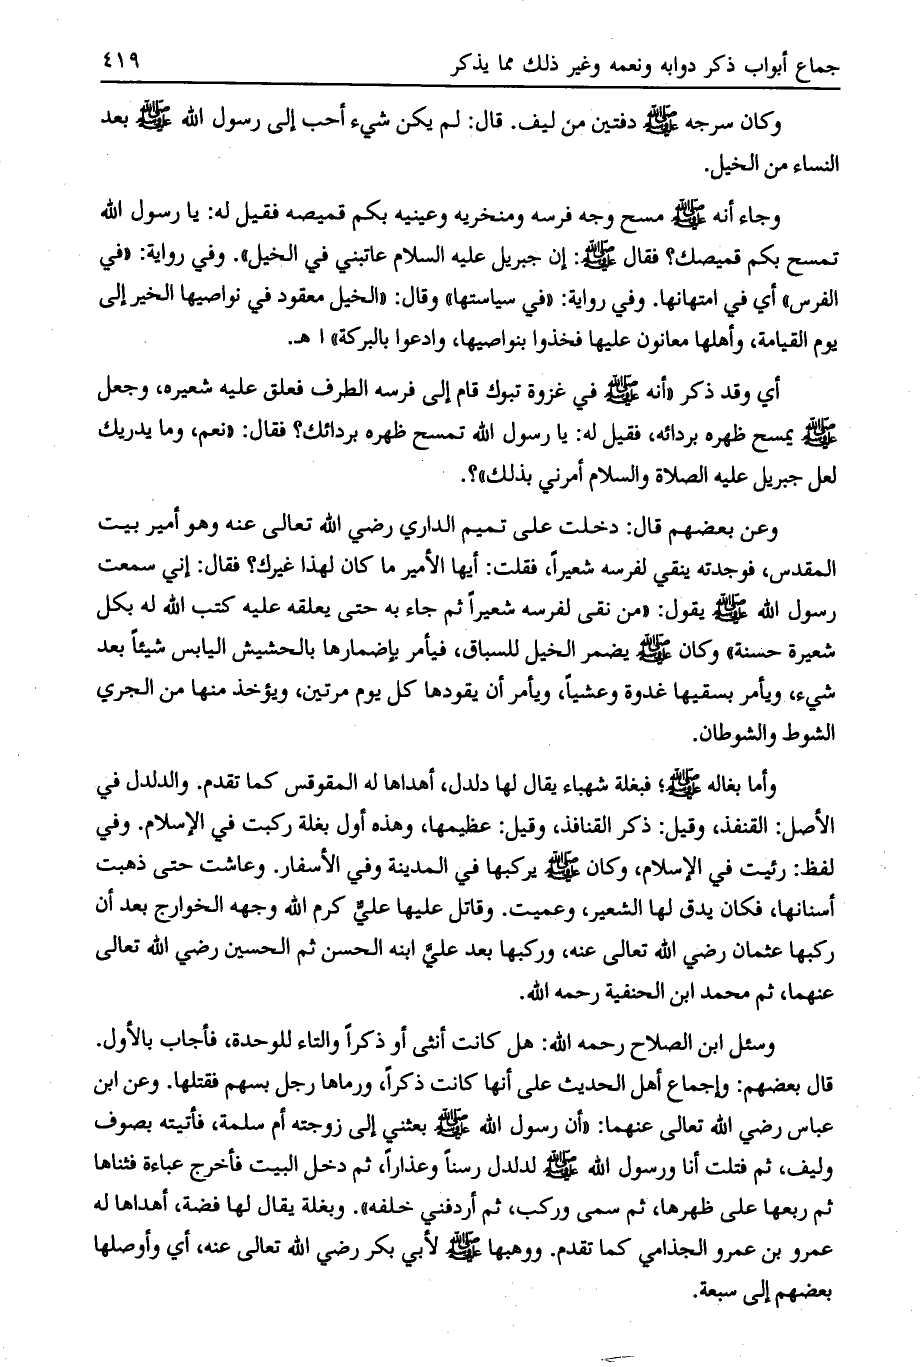 جماع أبواب ذكر دوابه ونعمه وغير ذلك مما يذكر ٤١٩
وكان سرجه ﷺ دفتين من ليف. قال: لم يكن شيء أحب إلى رسول الله ﷺ بعد
النساء من الخيل.
وجاء أنه ﷺ مسح وجه فرسه ومنخريه وعينيه بكم قميصه فقيل له: يا رسول الله
تمسح بكم قميصك؟ فقال ﷺ: إن جبريل عليه السلام عاتبني في الخيل». وفي رواية: «في
الفرس» أي في امتهانها. وفي رواية: «في سياستها» وقال: «الخيل معقود في نواصيها الخير إلى
يوم القيامة، وأهلها معانون عليها فخذوا بنواصيها، وادعوا بالبركة» ا هـ.
أي وقد ذكر «أنه ﷺ في غزوة تبوك قام إلى فرسه الطرف فعلق عليه شعيره، وجعل
ﷺ يمسح ظهره بردائه، فقيل له: يا رسول الله تمسح ظهره بردائك؟ فقال: «نعم، وما يدريك
لعل جبريل عليه الصلاة والسلام أمرني بذلك»؟.
وعن بعضهم قال: دخلت على تميم الداري رضي الله تعالى عنه وهو أمير بيت
المقدس، فوجدته ينقي لفرسه شعيراً، فقلت: أيها الأمير ما كان لهذا غيرك؟ فقال: إني سمعت
رسول الله ﷺ يقول: «من نقى لفرسه شعيراً ثم جاء به حتى يعلقه عليه كتب الله له بكل
شعيرة حسنة» وكان ﷺ يضمر الخيل للسباق، فيأمر بإضمارها بالحشيش اليابس شيئاً بعد
شيء، ويأمر بسقيها غدوة وعشياً، ويأمر أن يقودها كل يوم مرتين، ويؤخذ منها من الجري
الشوط والشوطان.
وأما بغاله ﷺ؛ فبغلة شهباء يقال لها دلدل، أهداها له المقوقس كما تقدم. والدلدل في
الأصل: القنفذ، وقيل: ذكر القنافذ، وقيل: عظيمها، وهذه أول بغلة ركبت في الإسلام. وفي
لفظ: رئيت في الإسلام، وكان ﷺ يركبها في المدينة وفي الأسفار. وعاشت حتى ذهبت
أسنانها، فكان يدق لها الشعير، وعميت. وقاتل عليها عليٌّ كرم الله وجهه الخوارج بعد أن
ركبها عثمان رضي الله تعالى عنه، وركبها بعد عليَّ ابنه الحسن ثم الحسين رضي الله تعالى
عنهما، ثم محمد ابن الحنفية رحمه الله.
وسئل ابن الصلاح رحمه الله: هل كانت أنثى أو ذكراً والتاء للوحدة، فأجاب بالأول.
قال بعضهم: وإجماع أهل الحديث على أنها كانت ذكراً، ورماها رجل بسهم فقتلها. وعن ابن
عباس رضي الله تعالى عنهما: «أن رسول الله ﷺ بعثني إلى زوجته أم سلمة، فأتيته بصوف
وليف، ثم فتلت أنا ورسول الله ﷺ لدلدل رسناً وعذاراً، ثم دخل البيت فأخرج عباءة فثناها
ثم ربعها على ظهرها، ثم سمى وركب، ثم أردفني خلفه». وبغلة يقال لها فضة، أهداها له
عمرو بن عمرو الجذامي كما تقدم. ووهبها ﷺ لأبي بكر رضي الله تعالى عنه، أي وأوصلها
بعضهم إلى سبعة.